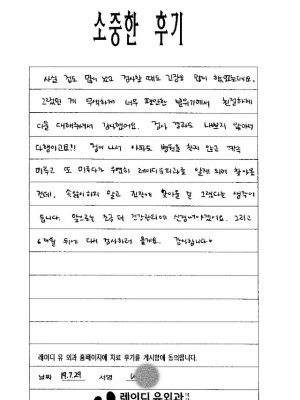 소중한 후기
사실 겁도 많이 났고 검사할 때도 긴장을 많이 했었는데요,
그랬던 게 무색하게 너무 편안한 분위기에서 친절하게
다들 대해주셔서 감사했어요. 검사 결과도 나쁘지 않아서
다행이고요!! 겁이 나서 아파도 병원을 찾지 않고 계속
미루고 또 미루다가 우연히 레이디유외과를 알게 되어 찾아왔
는데, 속앓이하지 말고 진작에 찾아올 걸 그랬다는 생각이
듭니다. 앞으로는 조금 더 건강관리에 신경써야겠어요. 그리고
6개월 뒤에 다시 검사하러 올게요.. 감사합니다♥
레이디 유 외과 홈페이지에 치료 후기를 게시함에 동의합니다.
날짜 19.7.29 서명
레이디유외과